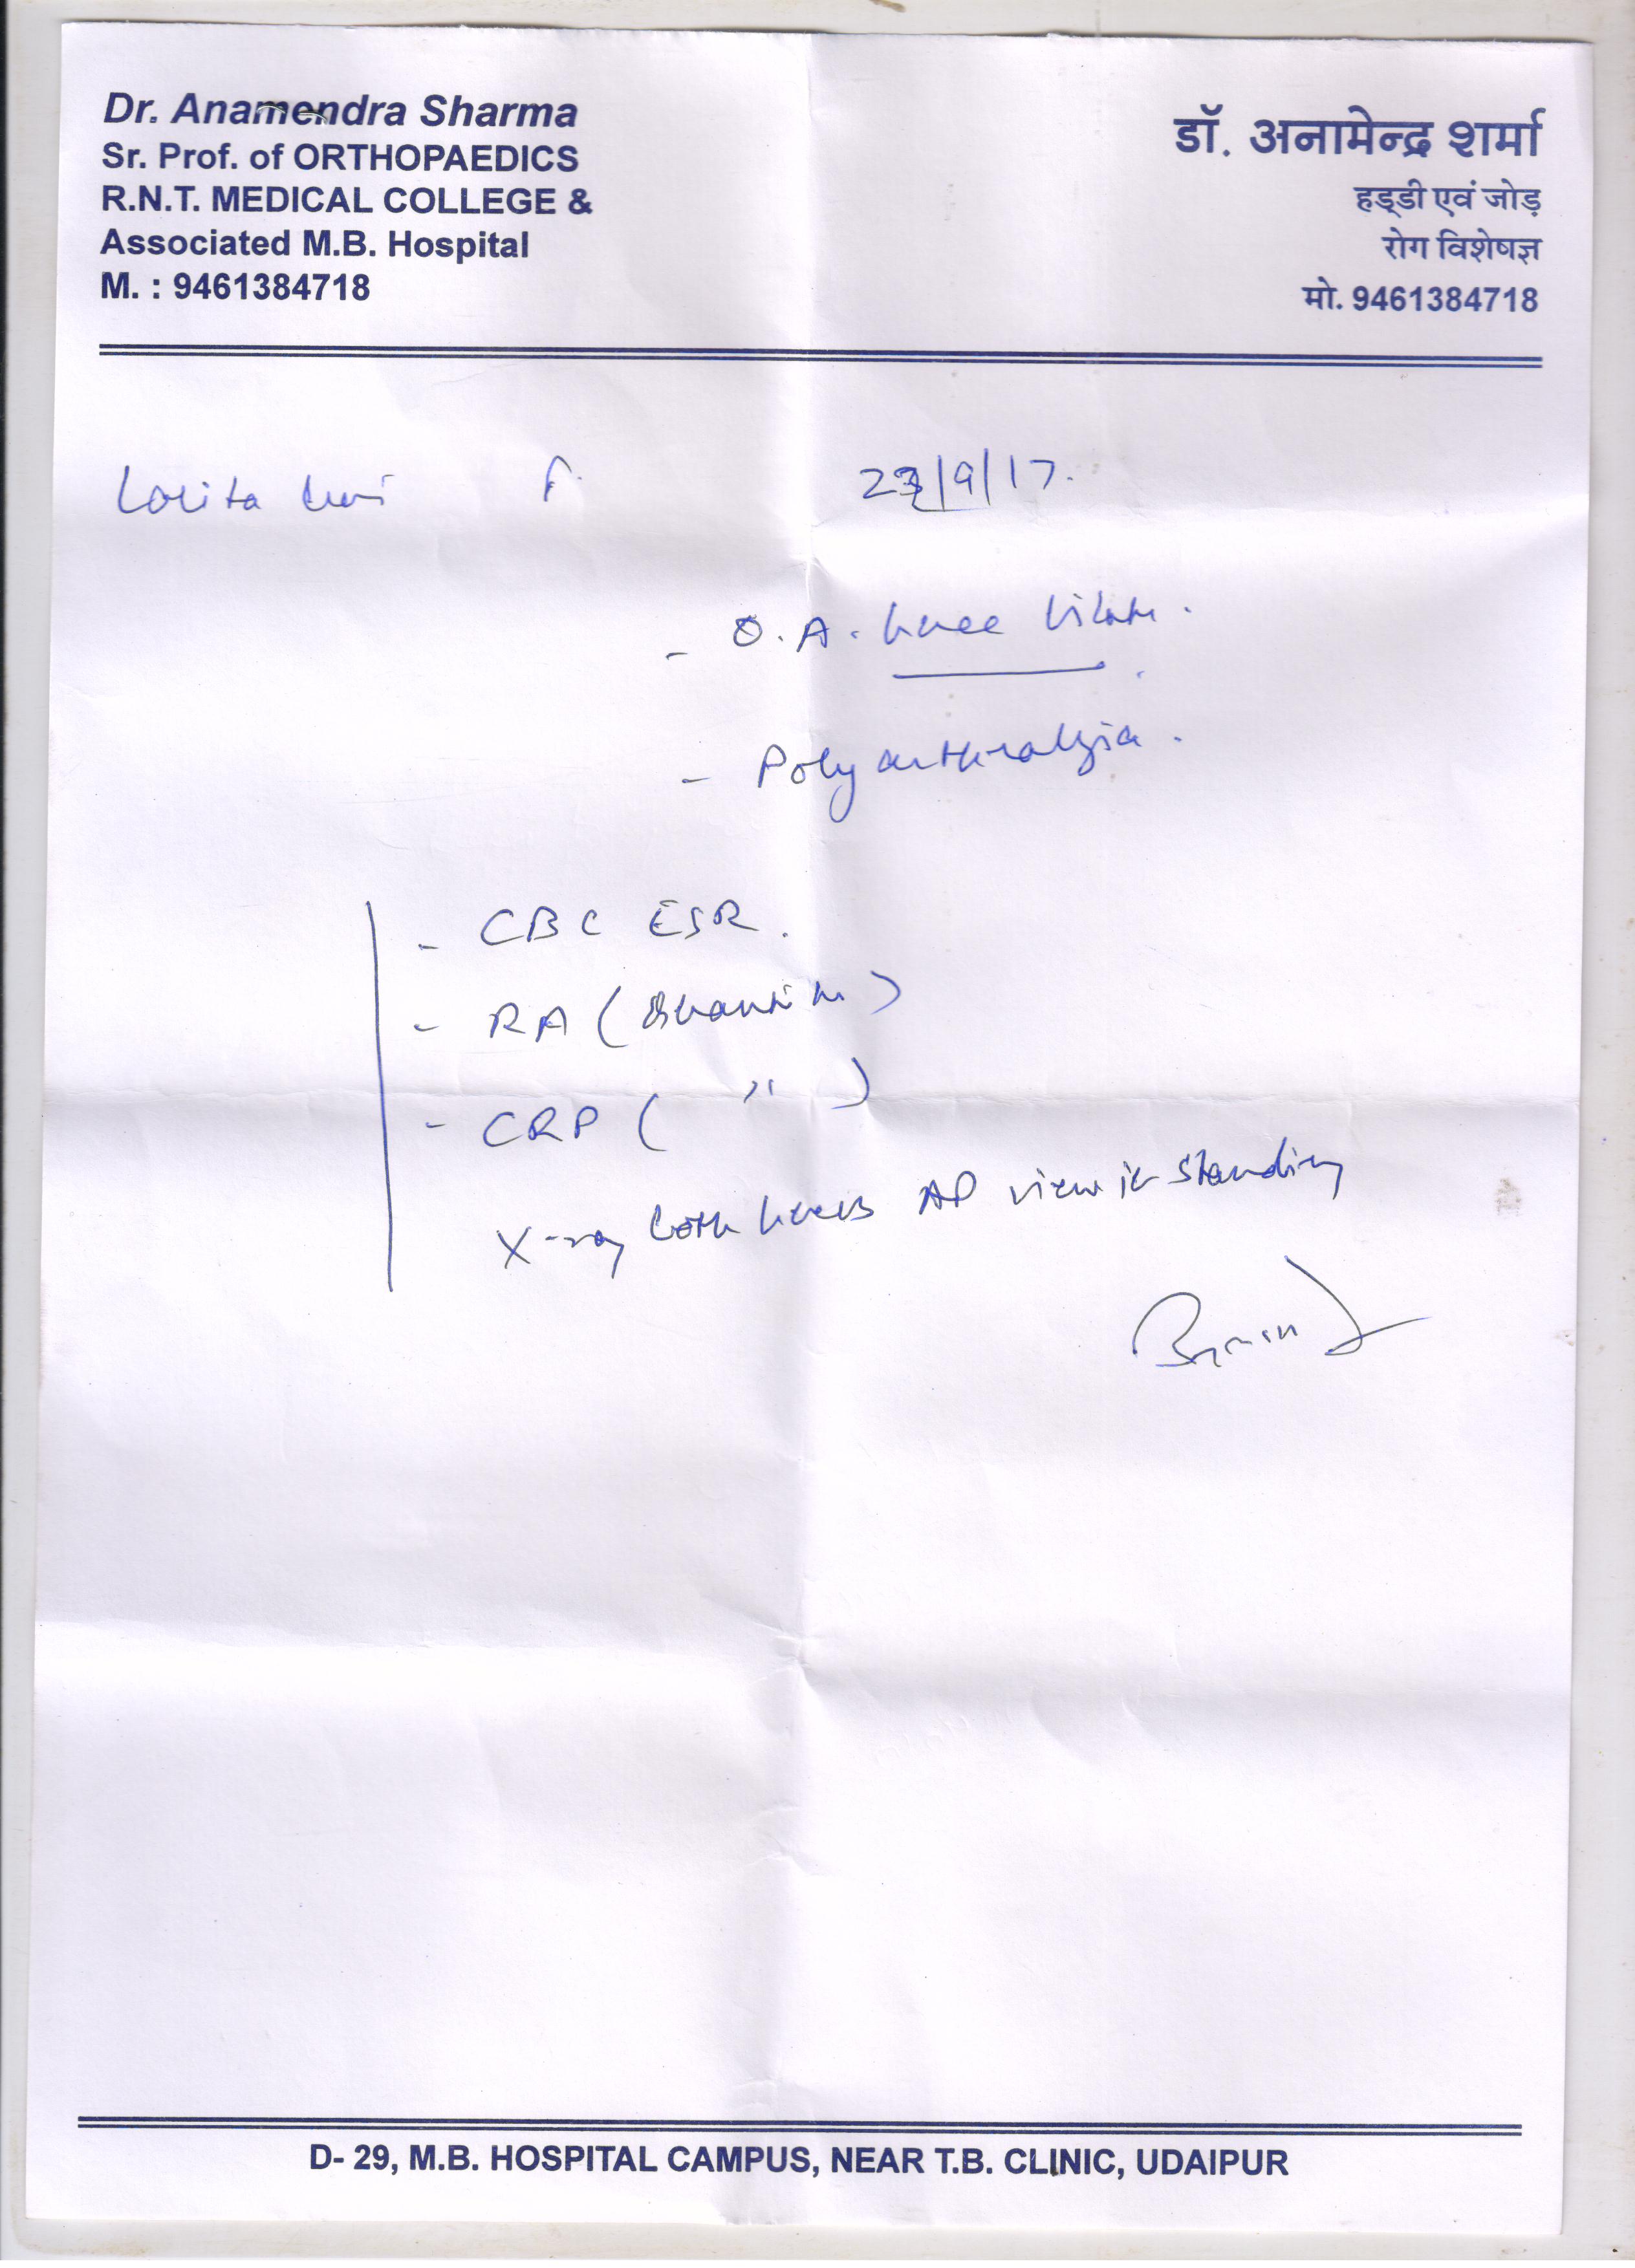 Dr. Anamendra Sharma
Sr. Prof. of ORTHOPAEDICS
R.N.T. MEDICAL COLLEGE &
Associated M.B. Hospital
M. : 9461384718
डॉ. अनामेन्द्र शर्मा
हड्डी एवं जोड़
रोग विशेषज्ञ
मो. 9461384718
F. /9/17.
- O.A. knee
- Polyarthralgia.
- CBC ESR.
- RA ( )
- CRP ( " )
X-ray both knees AP view in standing
D- 29, M.B. HOSPITAL CAMPUS, NEAR T.B. CLINIC, UDAIPUR